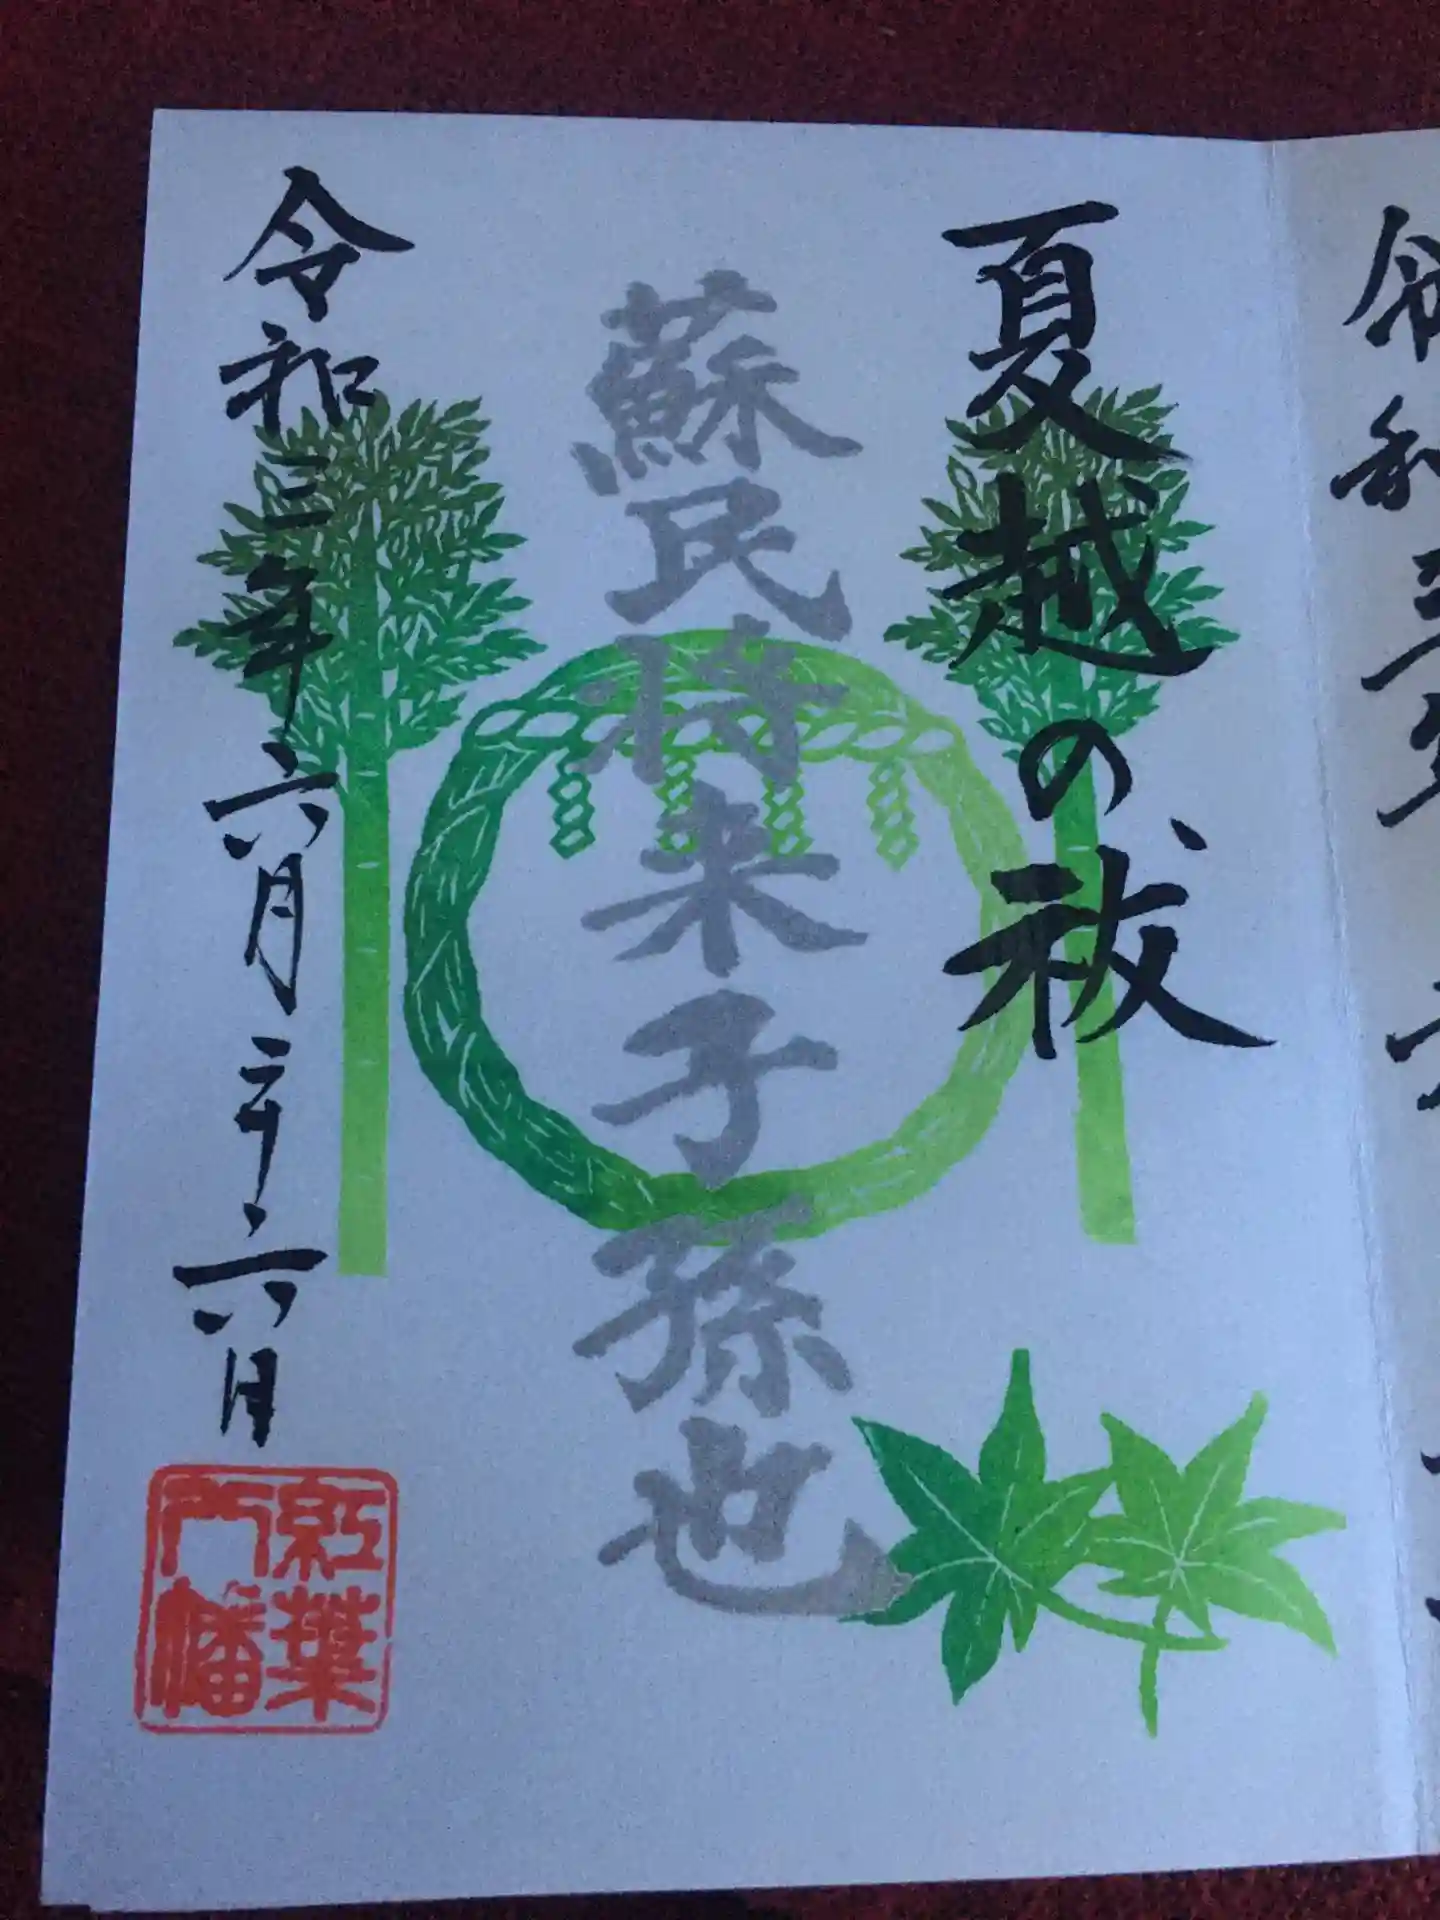 夏越の祓
蘇民将来子孫也
令和三年六月二十六日
紅葉
八幡